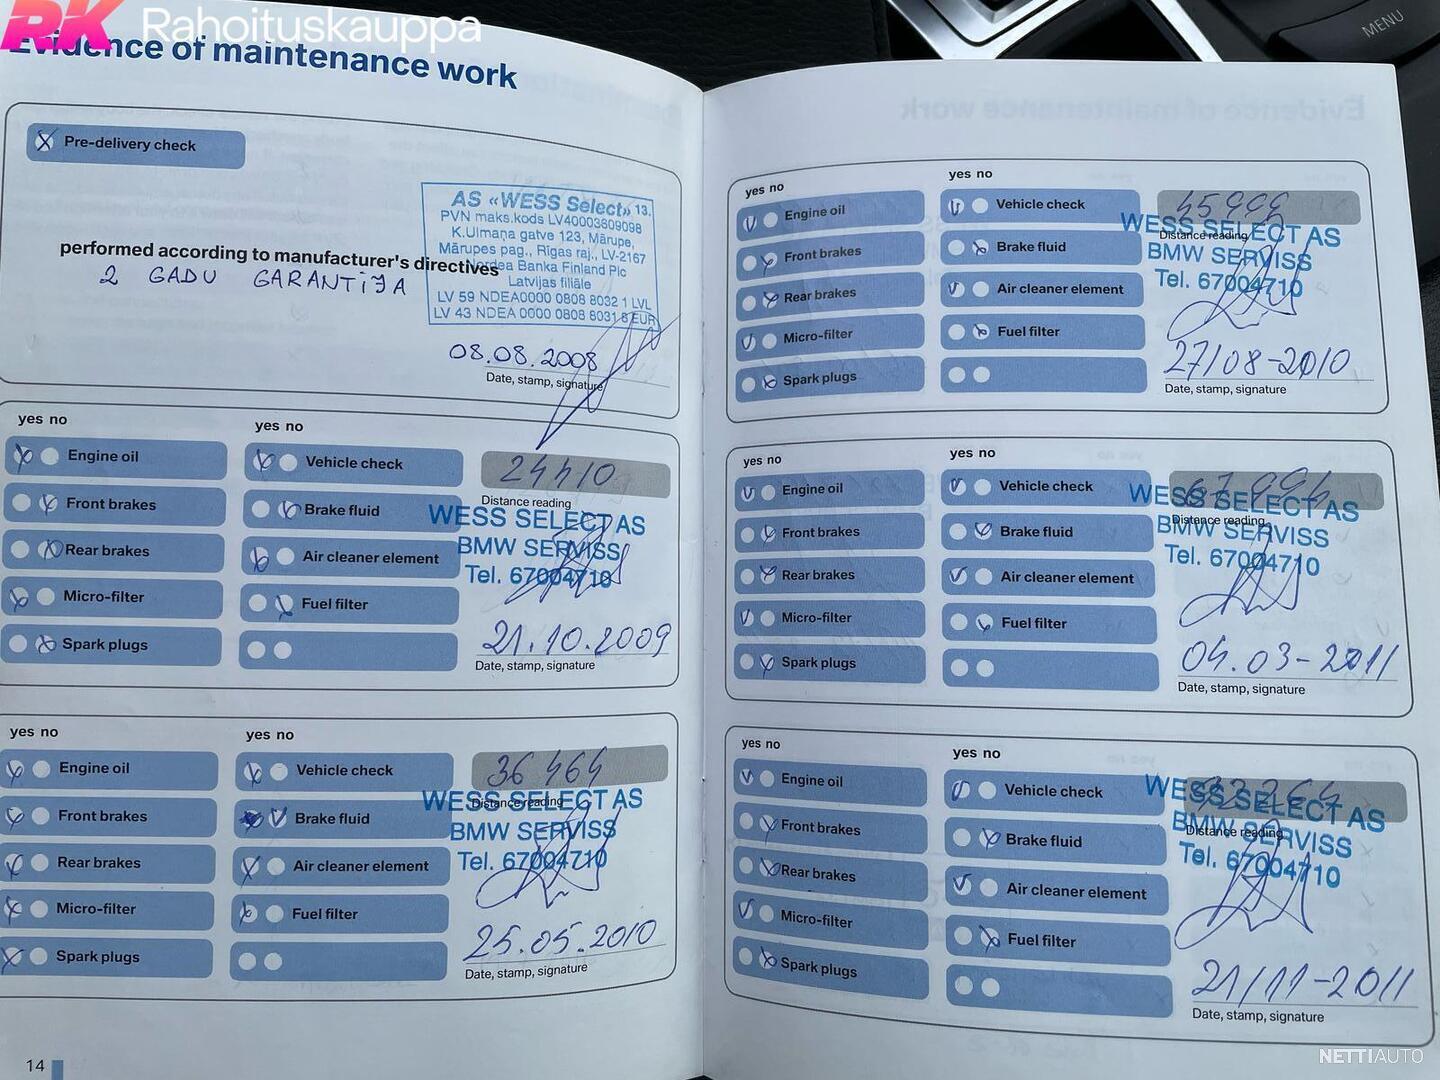 RK Rahoituskauppa
MENU
Evidence of maintenance work
Pre-delivery check
AS «WESS Select» 13.
PVN maks.kods LV40003609098
K.Ulmaņa gatve 123, Mārupe,
Mārupes pag., Rīgas raj., LV-2167
Nordea Banka Finland Plc
Latvijas filiāle
LV 59 NDEA0000 0808 8032 1 LVL
LV 43 NDEA 0000 0808 8031 8 EUR
performed according to manufacturer's directives
2 GADU GARANTIJA
08.08.2008
Date, stamp, signature
yes no
yes no
Engine oil
Vehicle check
Front brakes
Brake fluid
Rear brakes
Air cleaner element
Micro-filter
Fuel filter
Spark plugs
Distance reading
WESS SELECT AS
BMW SERVISS
Tel. 67004710
21.10.2009
Date, stamp, signature
yes no
yes no
Engine oil
Vehicle check
Front brakes
Brake fluid
Rear brakes
Air cleaner element
Micro-filter
Fuel filter
Spark plugs
36464
Distance reading
WESS SELECT AS
BMW SERVISS
Tel. 67004710
25.05.2010
Date, stamp, signature
14
yes no
yes no
Engine oil
Vehicle check
Front brakes
Brake fluid
Rear brakes
Air cleaner element
Micro-filter
Fuel filter
Spark plugs
Distance reading
WESS SELECT AS
BMW SERVISS
Tel. 67004710
27/08-2010
Date, stamp, signature
yes no
yes no
Engine oil
Vehicle check
Front brakes
Brake fluid
Rear brakes
Air cleaner element
Micro-filter
Fuel filter
Spark plugs
Distance reading
WESS SELECT AS
BMW SERVISS
Tel. 67004710
04.03-2011
Date, stamp, signature
yes no
yes no
Engine oil
Vehicle check
Front brakes
Brake fluid
Rear brakes
Air cleaner element
Micro-filter
Fuel filter
Spark plugs
Distance reading
WESS SELECT AS
BMW SERVISS
Tel. 67004710
21/11-2011
Date, stamp, signature
NETTIAUTO